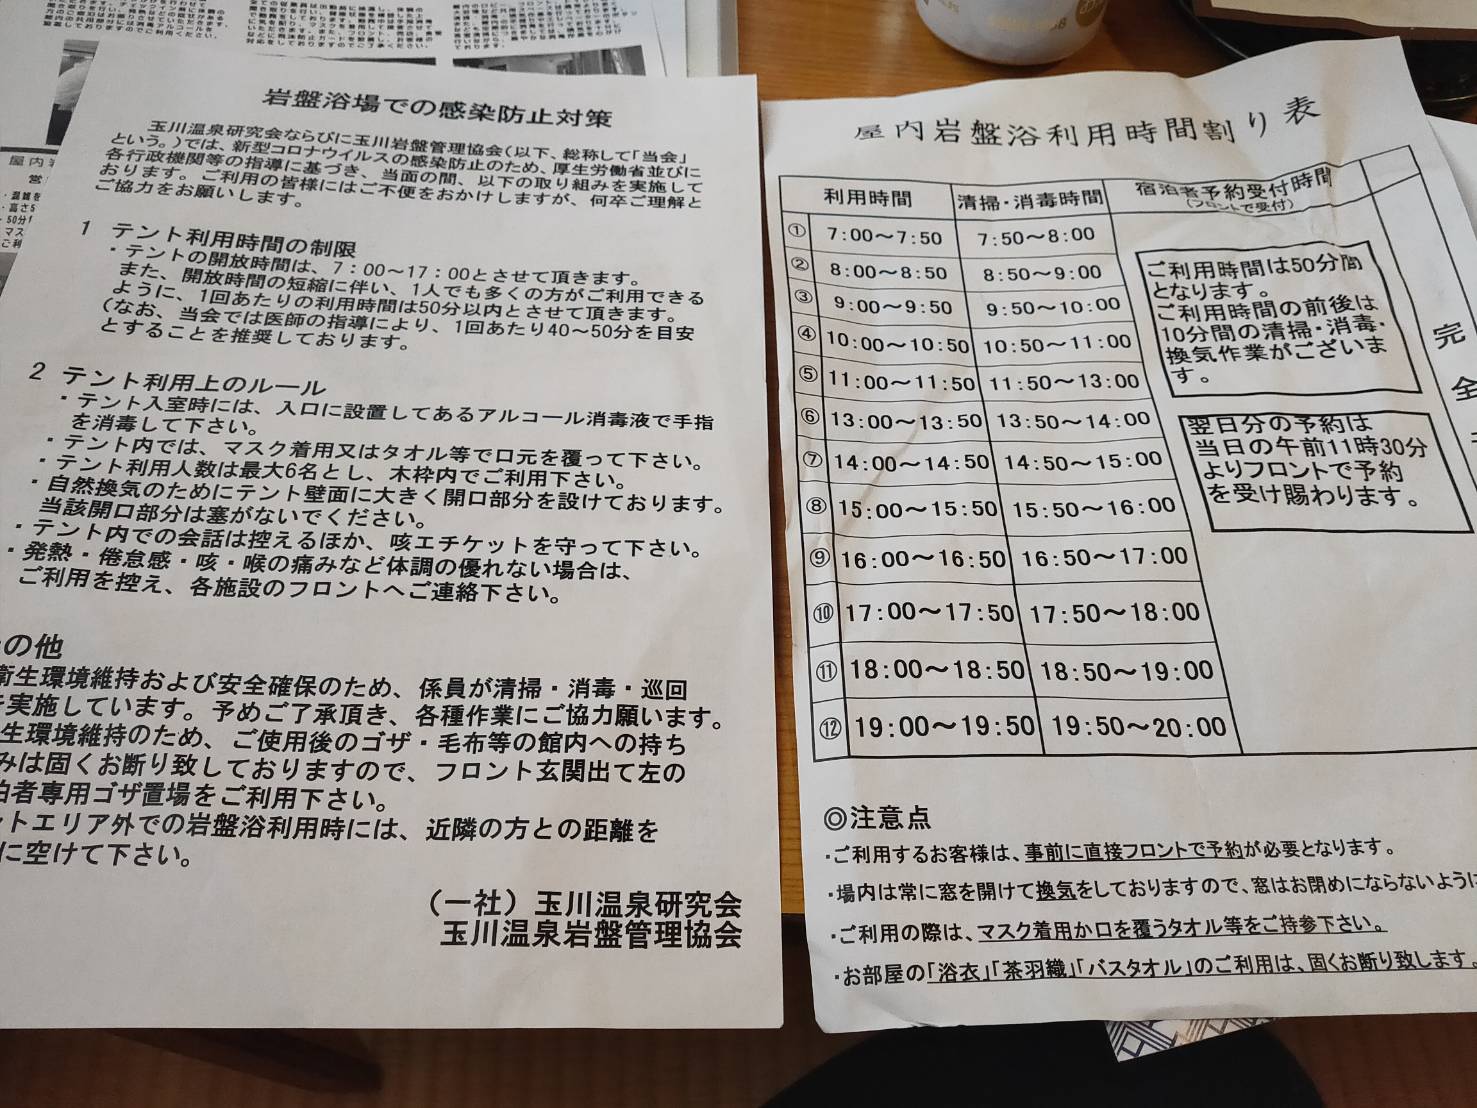 岩盤浴場での感染防止対策
玉川温泉研究会ならびに玉川岩盤管理協会(以下、総称して「当会」
という。)では、新型コロナウイルスの感染防止のため、厚生労働省並びに
各行政機関等の指導に基づき、当面の間、以下の取り組みを実施して
おります。ご利用の皆様にはご不便をおかけしますが、何卒ご理解と
ご協力をお願いします。
1 テント利用時間の制限
・テントの開放時間は、7:00～17:00とさせて頂きます。
また、開放時間の短縮に伴い、1人でも多くの方がご利用できる
ように、1回あたりの利用時間は50分以内とさせて頂きます。
(なお、当会では医師の指導により、1回あたり40～50分を目安
とすることを推奨しております。
2 テント利用上のルール
・テント入室時には、入口に設置してあるアルコール消毒液で手指
を消毒して下さい。
・テント内では、マスク着用又はタオル等で口元を覆って下さい。
・テント利用人数は最大6名とし、木枠内でご利用下さい。
・自然換気のためにテント壁面に大きく開口部分を設けております。
当該開口部分は塞がないでください。
・テント内での会話は控えるほか、咳エチケットを守って下さい。
・発熱・倦怠感・咳・喉の痛みなど体調の優れない場合は、
ご利用を控え、各施設のフロントへご連絡下さい。
の他
衛生環境維持および安全確保のため、係員が清掃・消毒・巡回
を実施しています。予めご了承頂き、各種作業にご協力願います。
生環境維持のため、ご使用後のゴザ・毛布等の館内への持ち
みは固くお断り致しておりますので、フロント玄関出て左の
泊者専用ゴザ置場をご利用下さい。
ントエリア外での岩盤浴利用時には、近隣の方との距離を
に空けて下さい。
(一社)玉川温泉研究会
玉川温泉岩盤管理協会
屋内岩盤浴利用時間割り表
利用時間 清掃・消毒時間 宿泊者予約受付時間
(フロントで受付)
① 7:00～7:50 7:50～8:00
② 8:00～8:50 8:50～9:00
③ 9:00～9:50 9:50～10:00
④ 10:00～10:50 10:50～11:00
⑤ 11:00～11:50 11:50～13:00
⑥ 13:00～13:50 13:50～14:00
⑦ 14:00～14:50 14:50～15:00
⑧ 15:00～15:50 15:50～16:00
⑨ 16:00～16:50 16:50～17:00
⑩ 17:00～17:50 17:50～18:00
⑪ 18:00～18:50 18:50～19:00
⑫ 19:00～19:50 19:50～20:00
ご利用時間は50分間
となります。
ご利用時間の前後は
10分間の清掃・消毒・
換気作業がございま
す。
翌日分の予約は
当日の午前11時30分
よりフロントで予約
を受け賜わります。
完
全
◎注意点
・ご利用するお客様は、事前に直接フロントで予約が必要となります。
・場内は常に窓を開けて換気をしておりますので、窓はお閉めにならないように
・ご利用の際は、マスク着用か口を覆うタオル等をご持参下さい。
・お部屋の「浴衣」「茶羽織」「バスタオル」のご利用は、固くお断り致します。